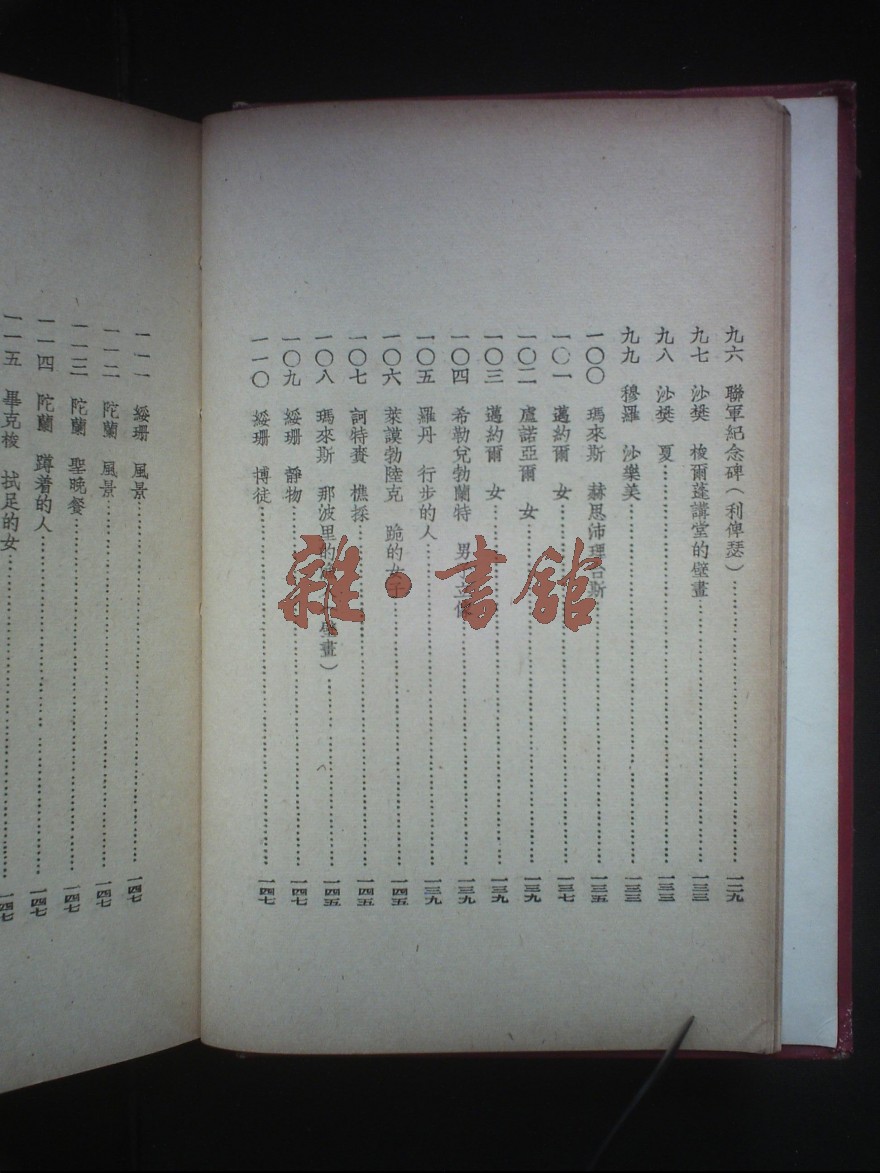 九六 聯軍紀念碑(利俾瑟)……一二九
九七 沙樊 梭爾蓬講堂的壁畫……一三三
九八 沙樊 夏……一三三
九九 穆羅 沙樂美……一三三
一〇〇 瑪來斯 赫思沛理 斯……一三五
一〇一 邁約爾 女……一三七
一〇二 盧諾亞爾 女……一三九
一〇三 邁約爾 女……一三九
一〇四 希勒兌勃蘭特 男 立像……一三九
一〇五 羅丹 行步的人……一三九
一〇六 萊謨勃陸克 跪的女子……一四五
一〇七 訶特賚 樵採……一四五
一〇八 瑪來斯 那波里的 壁畫)……一四五
一〇九 綏珊 靜物……一四七
一一〇 綏珊 博徒……一四七
一一一 綏珊 風景……一四七
一一二 陀蘭 風景……一四七
一一三 陀蘭 聖晚餐……一四七
一一四 陀蘭 蹲着的人……一四七
一一五 畢克梭 拭足的女……一四七
雜·書館